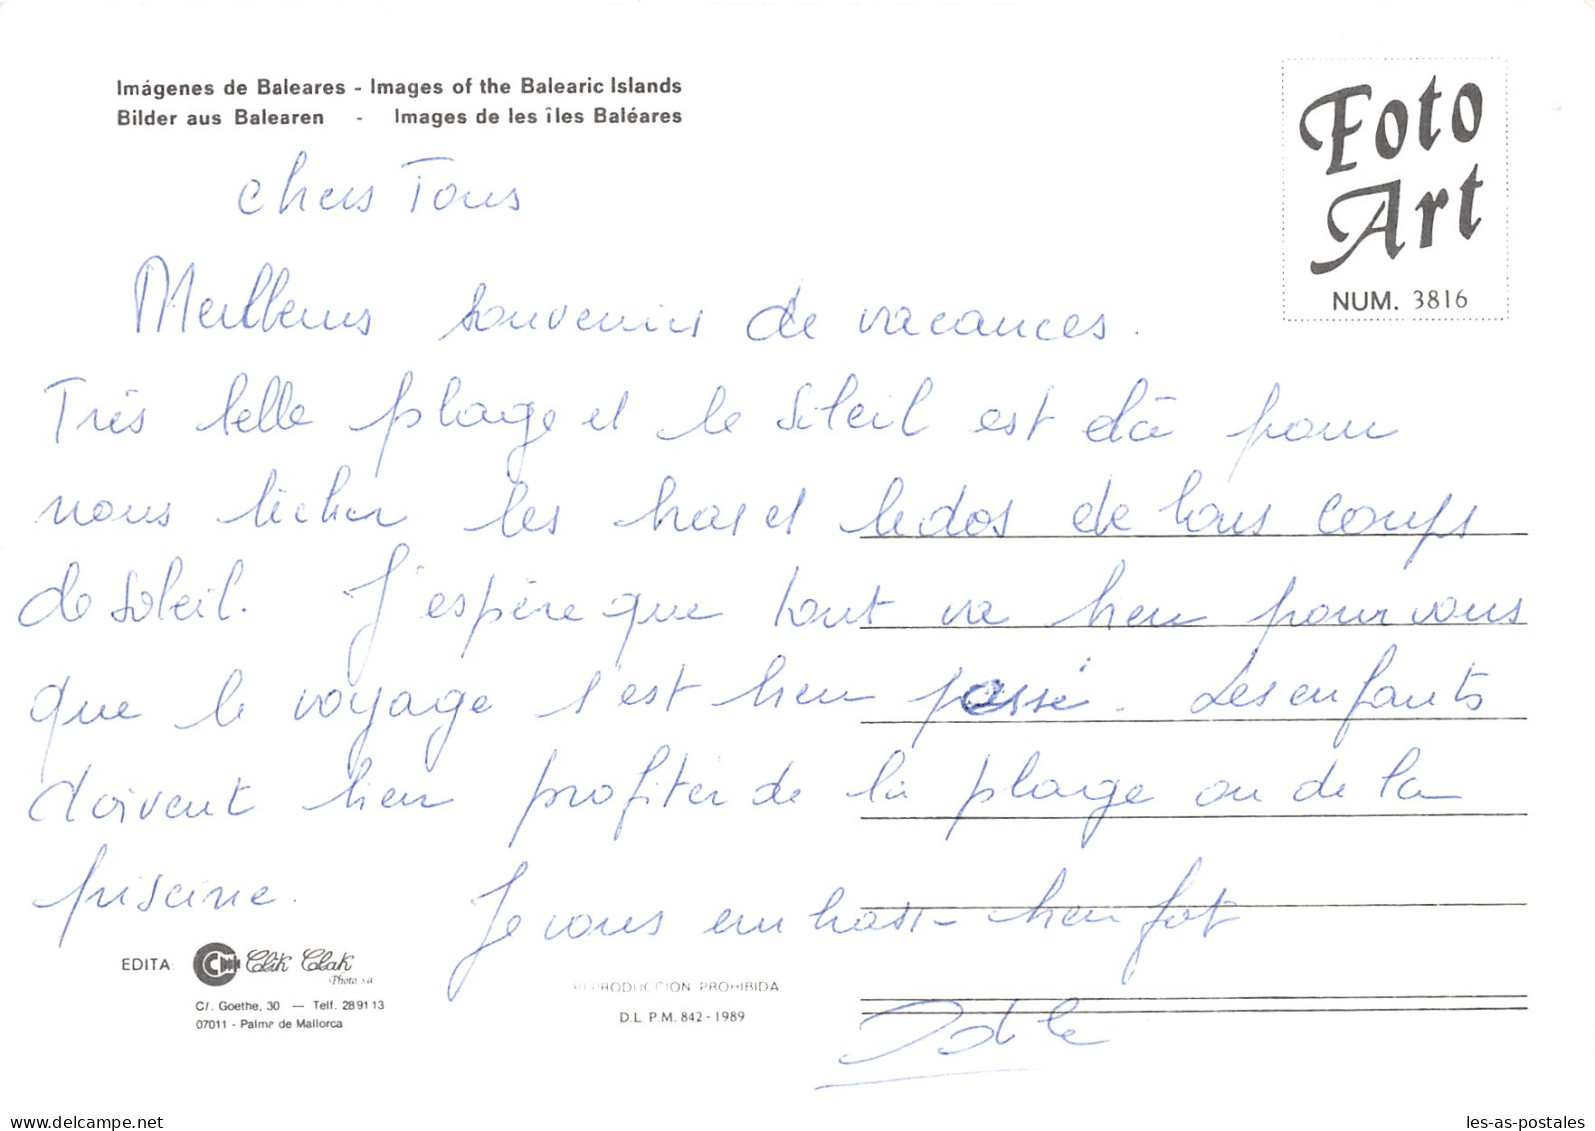 Imágenes de Baleares - Images of the Balearic Islands
Bilder aus Balearen - Images de les îles Baléares
Foto
Art
NUM. 3816
Chers Tous
Meilleurs souvenirs de vacances.
Très belle plage et le soleil est là pour
nous lécher les bras et le dos de bons coups
de soleil. J'espère que tout va bien pour vous
que le voyage s'est bien passé. Les enfants
doivent bien profiter de la plage ou de la
piscine. Je vous embrasse bien fort
EDITA: Clik Clak
Photo, s.a
C/. Goethe, 30 — Telf. 28 91 13
07011 - Palma de Mallorca
REPRODUCCION PROHIBIDA
D.L. P.M. 842 - 1989
delcampe.net
les-as-postales